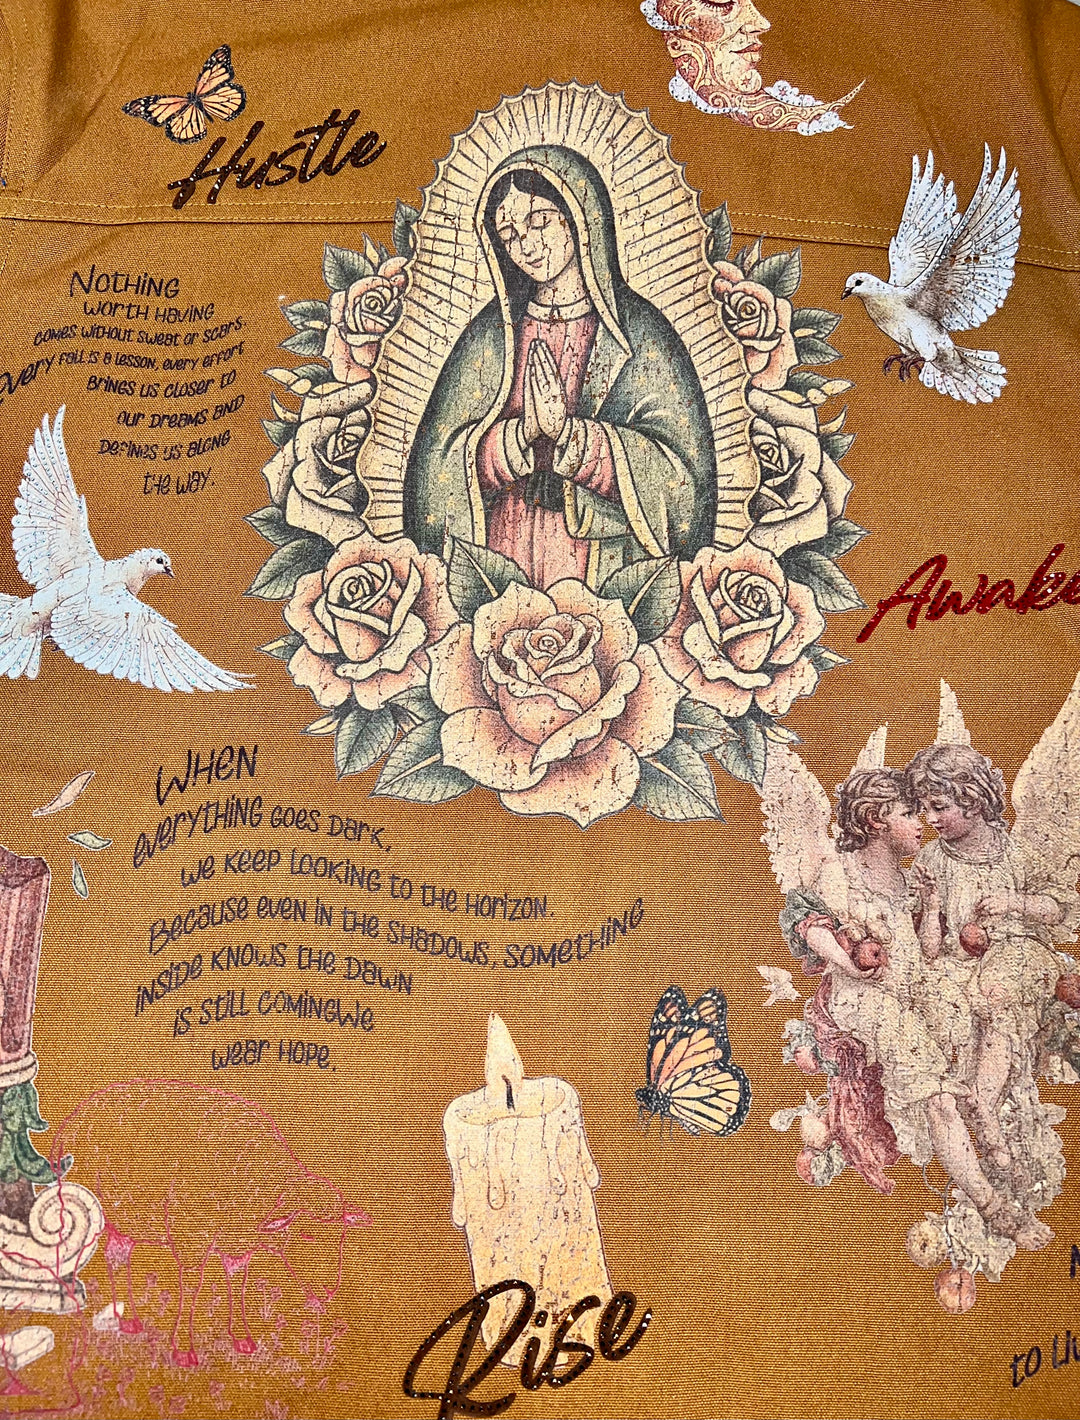 Hustle
NOTHING
WORTH HAVING
COMES WITHOUT SWEAT OR SCARS.
EVERY FALL IS A LESSON, EVERY EFFORT
BRINGS US CLOSER TO
OUR DREAMS AND
DEFINES US ALONG
THE WAY.
Awake
WHEN
EVERYTHING GOES DARK,
WE KEEP LOOKING TO THE HORIZON.
BECAUSE EVEN IN THE SHADOWS, SOMETHING
INSIDE KNOWS THE DAWN
IS STILL COMINGWE
WEAR HOPE.
Rise
TO